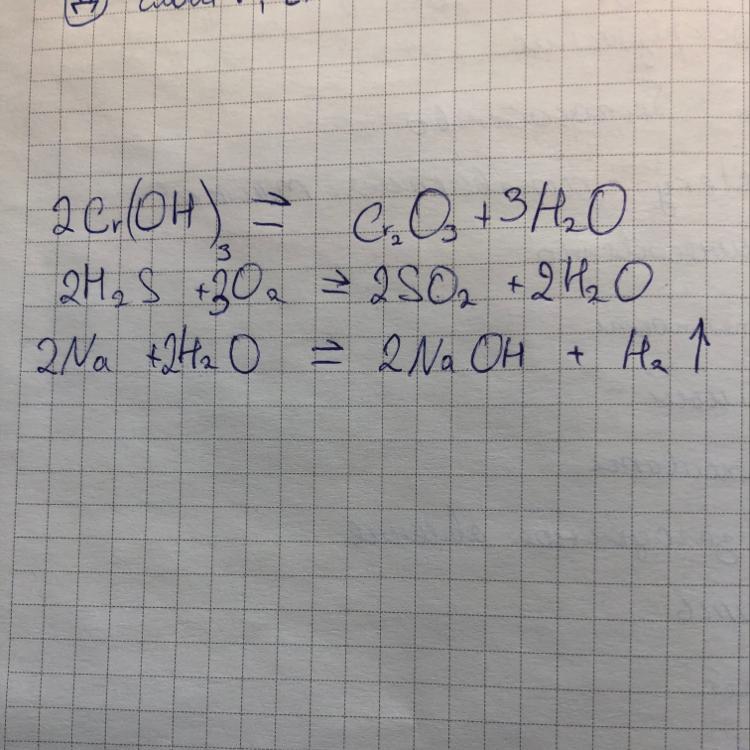 2Cr(OH)₃ ⇒ Cr₂O₃ + 3H₂O
2H₂S + 3O₂ ⇒ 2SO₂ + 2H₂O
2Na + 2H₂O ⇒ 2NaOH + H₂↑